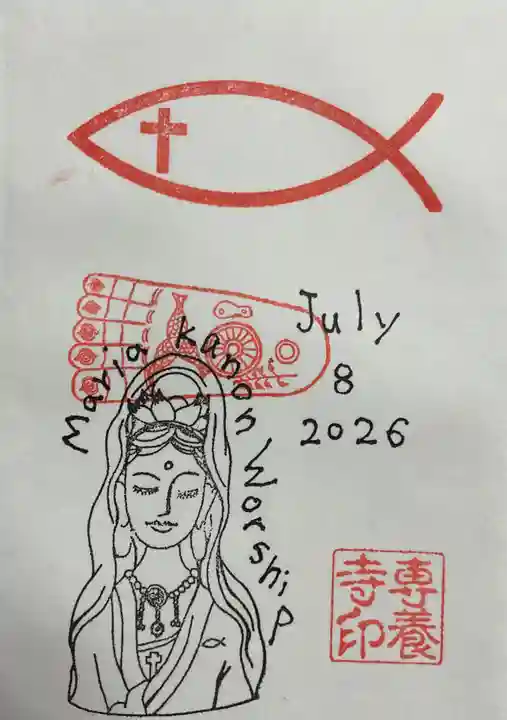 Maria Kanon Worship
July
8
2026
専養
寺印